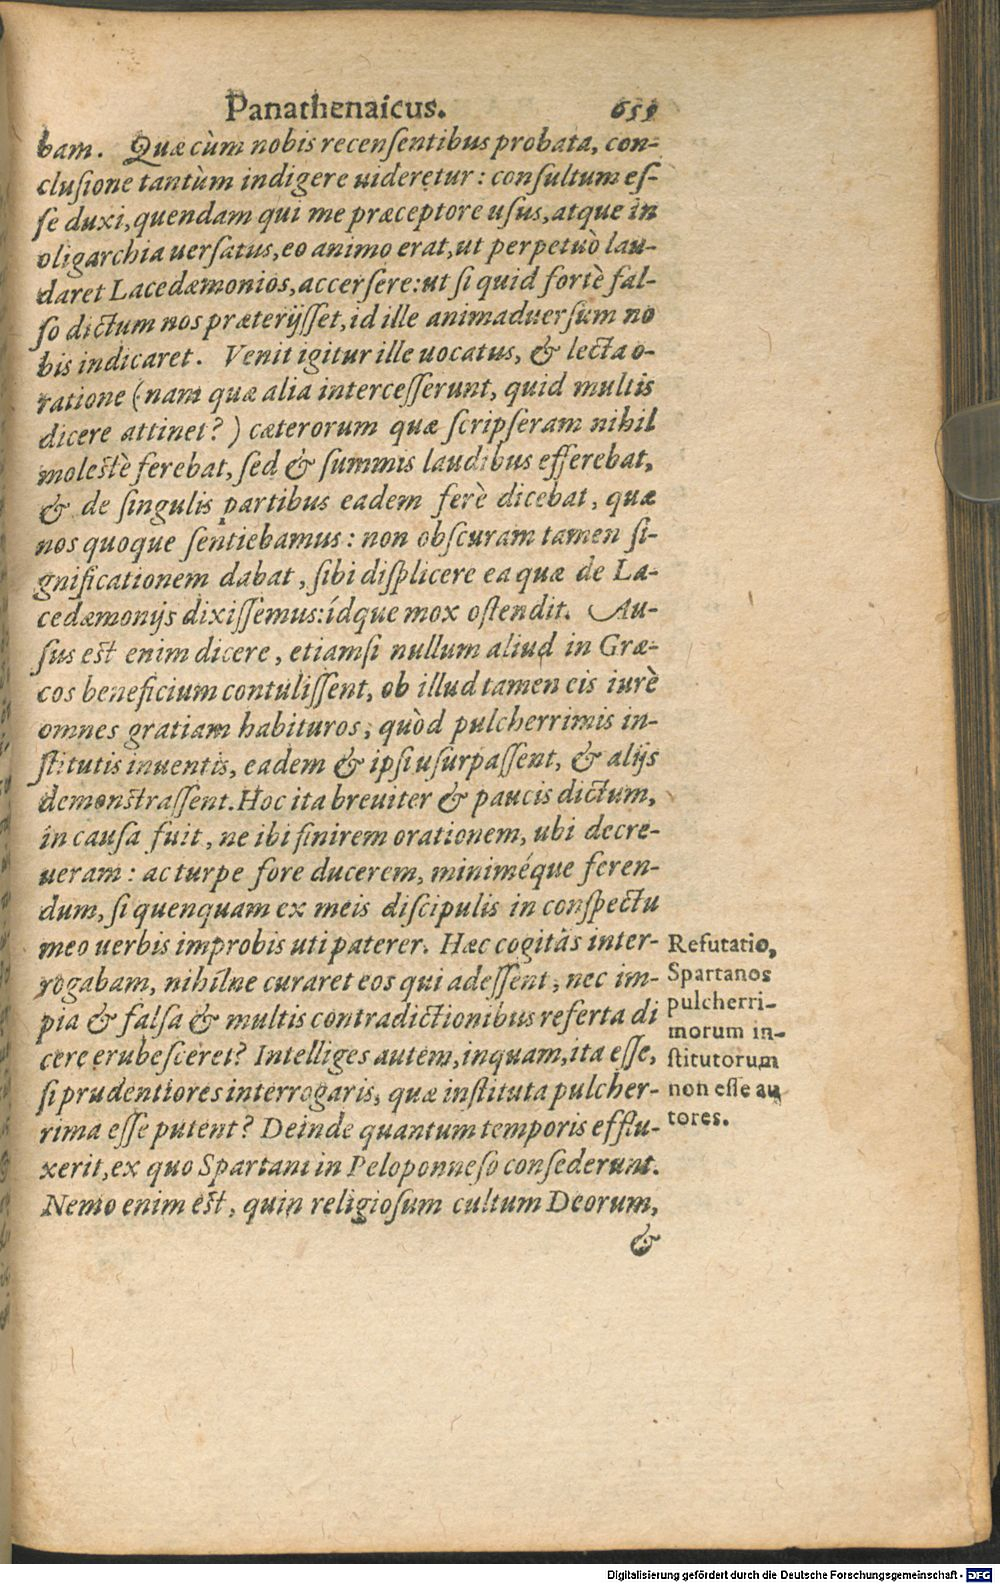 Panathenaicus. 659
bam. Quæ cùm nobis recensentibus probata, con-
clusione tantùm indigere uideretur: consultum es-
se duxi, quendam qui me præceptore usus, atque in
oligarchia uersatus, eo animo erat, ut perpetuò lau-
daret Lacedæmonios, accersere: ut si quid fortè fal-
so dictum nos præterijsset, id ille animaduersum no
bis indicaret. Venit igitur ille uocatus, & lecta o-
ratione (nam quæ alia intercesserunt, quid multis
dicere attinet?) cæterorum quæ scripseram nihil
molestè ferebat, sed & summis laudibus efferebat,
& de singulis partibus eadem ferè dicebat, quæ
nos quoque sentiebamus: non obscuram tamen si-
gnificationem dabat, sibi displicere ea quæ de La-
cedæmonijs dixissemus: ídque mox ostendit. Au-
sus est enim dicere, etiamsi nullum aliud in Græ-
cos beneficium contulissent, ob illud tamen eis iurè
omnes gratiam habituros, quòd pulcherrimis in-
stitutis inuentis, eadem & ipsi usurpassent, & alijs
demonstrassent. Hoc ita breuiter & paucis dictum,
in causa fuit, ne ibi finirem orationem, ubi decre-
ueram: ac turpe fore ducerem, miniméque feren-
dum, si quenquam ex meis discipulis in conspectu
meo uerbis improbis uti paterer. Hæc cogitãs inter-
rogabam, nihílne curaret eos qui adessent, nec im-
pia & falsa & multis contradictionibus referta di
cere erubesceret? Intelliges autem, inquam, ita esse,
si prudentiores interrogaris, quæ instituta pulcher-
rima esse putent? Deinde quantum temporis efflu-
xerit, ex quo Spartani in Peloponneso consederunt.
Nemo enim est, quin religiosum cultum Deorum,
&
Refutatio,
Spartanos
pulcherri-
morum in-
stitutorum
non esse au
tores.
Digitalisierung gefördert durch die Deutsche Forschungsgemeinschaft - DFG